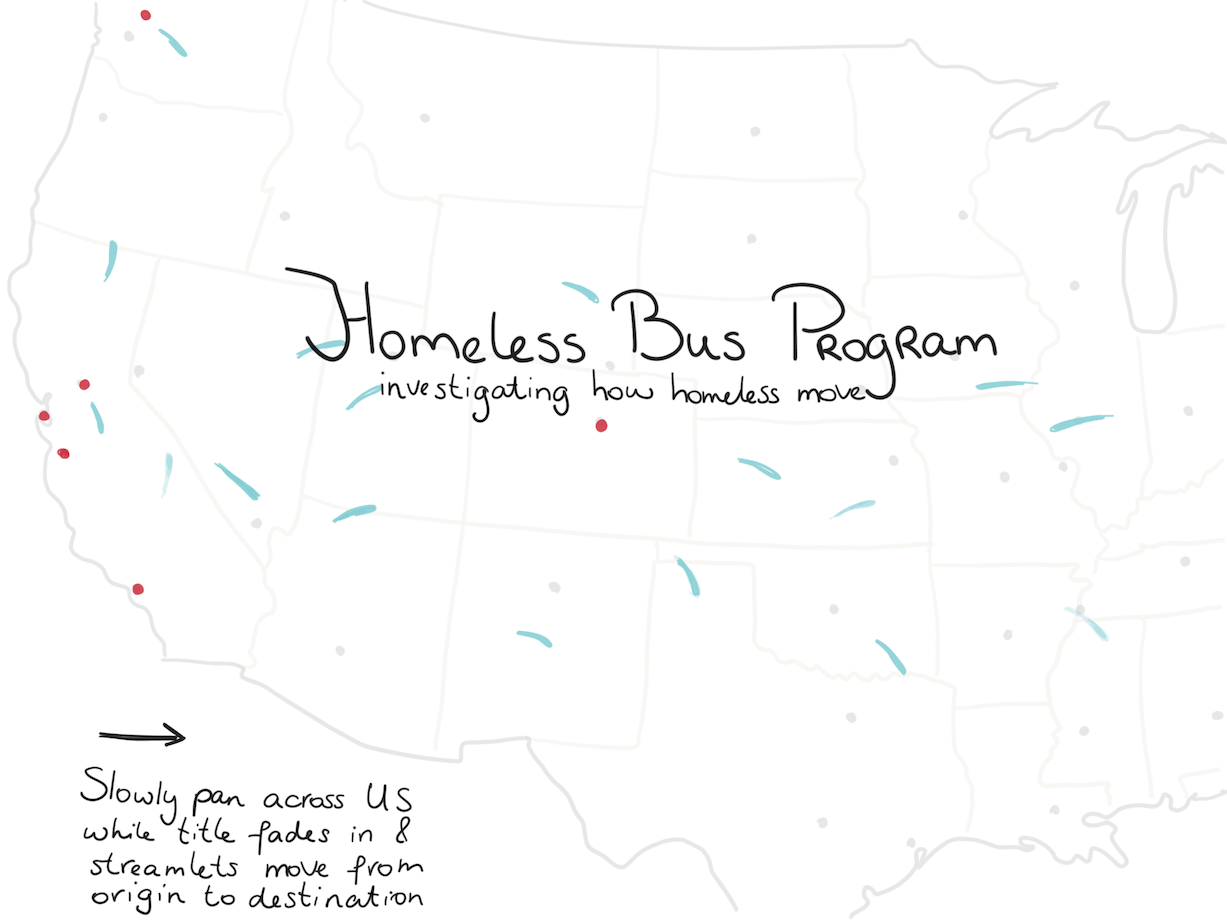 Homeless Bus Program
investigating how homeless move
Slowly pan across US
while title fades in &
streamlets move from
origin to destination